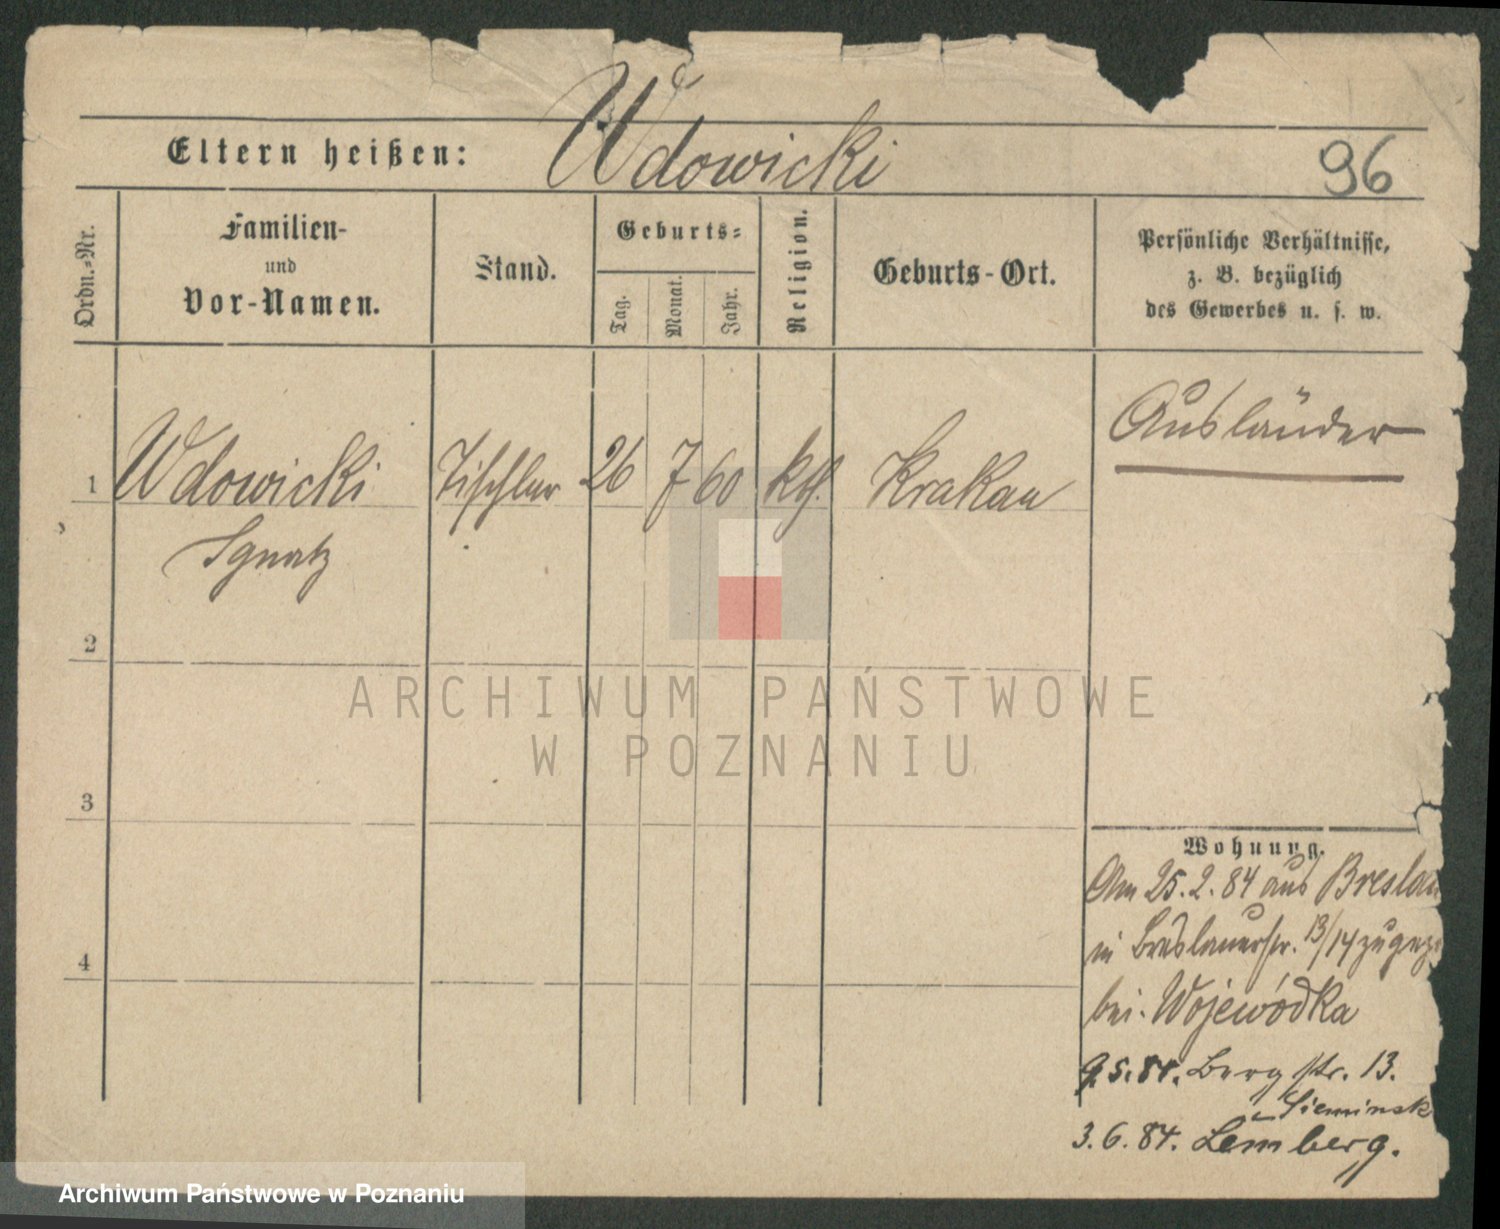 Wdowicki
Eltern heißen:
96
Ordn.=Nr.
Familien-
und
Vor-Namen.
Stand.
Geburts=
Tag.
Monat.
Jahr.
Religion.
Geburts-Ort.
Persönliche Verhältnisse,
z. B. bezüglich
des Gewerbes u. s. w.
Ausländer
1 Wdowicki Tischler 26 7 60 kth. Krakau
Ignatz
2
3
4
Wohnung.
Am 25. 2. 84 aus Breslau
in Breslauerstr. 13/14 zugez
bei Wojewódka
9.5.84. Bergstr. 13.
Sieminsk
3. 6. 84. Lemberg.
ARCHIWUM PAŃSTWOWE
W POZNANIU
Archiwum Państwowe w Poznaniu